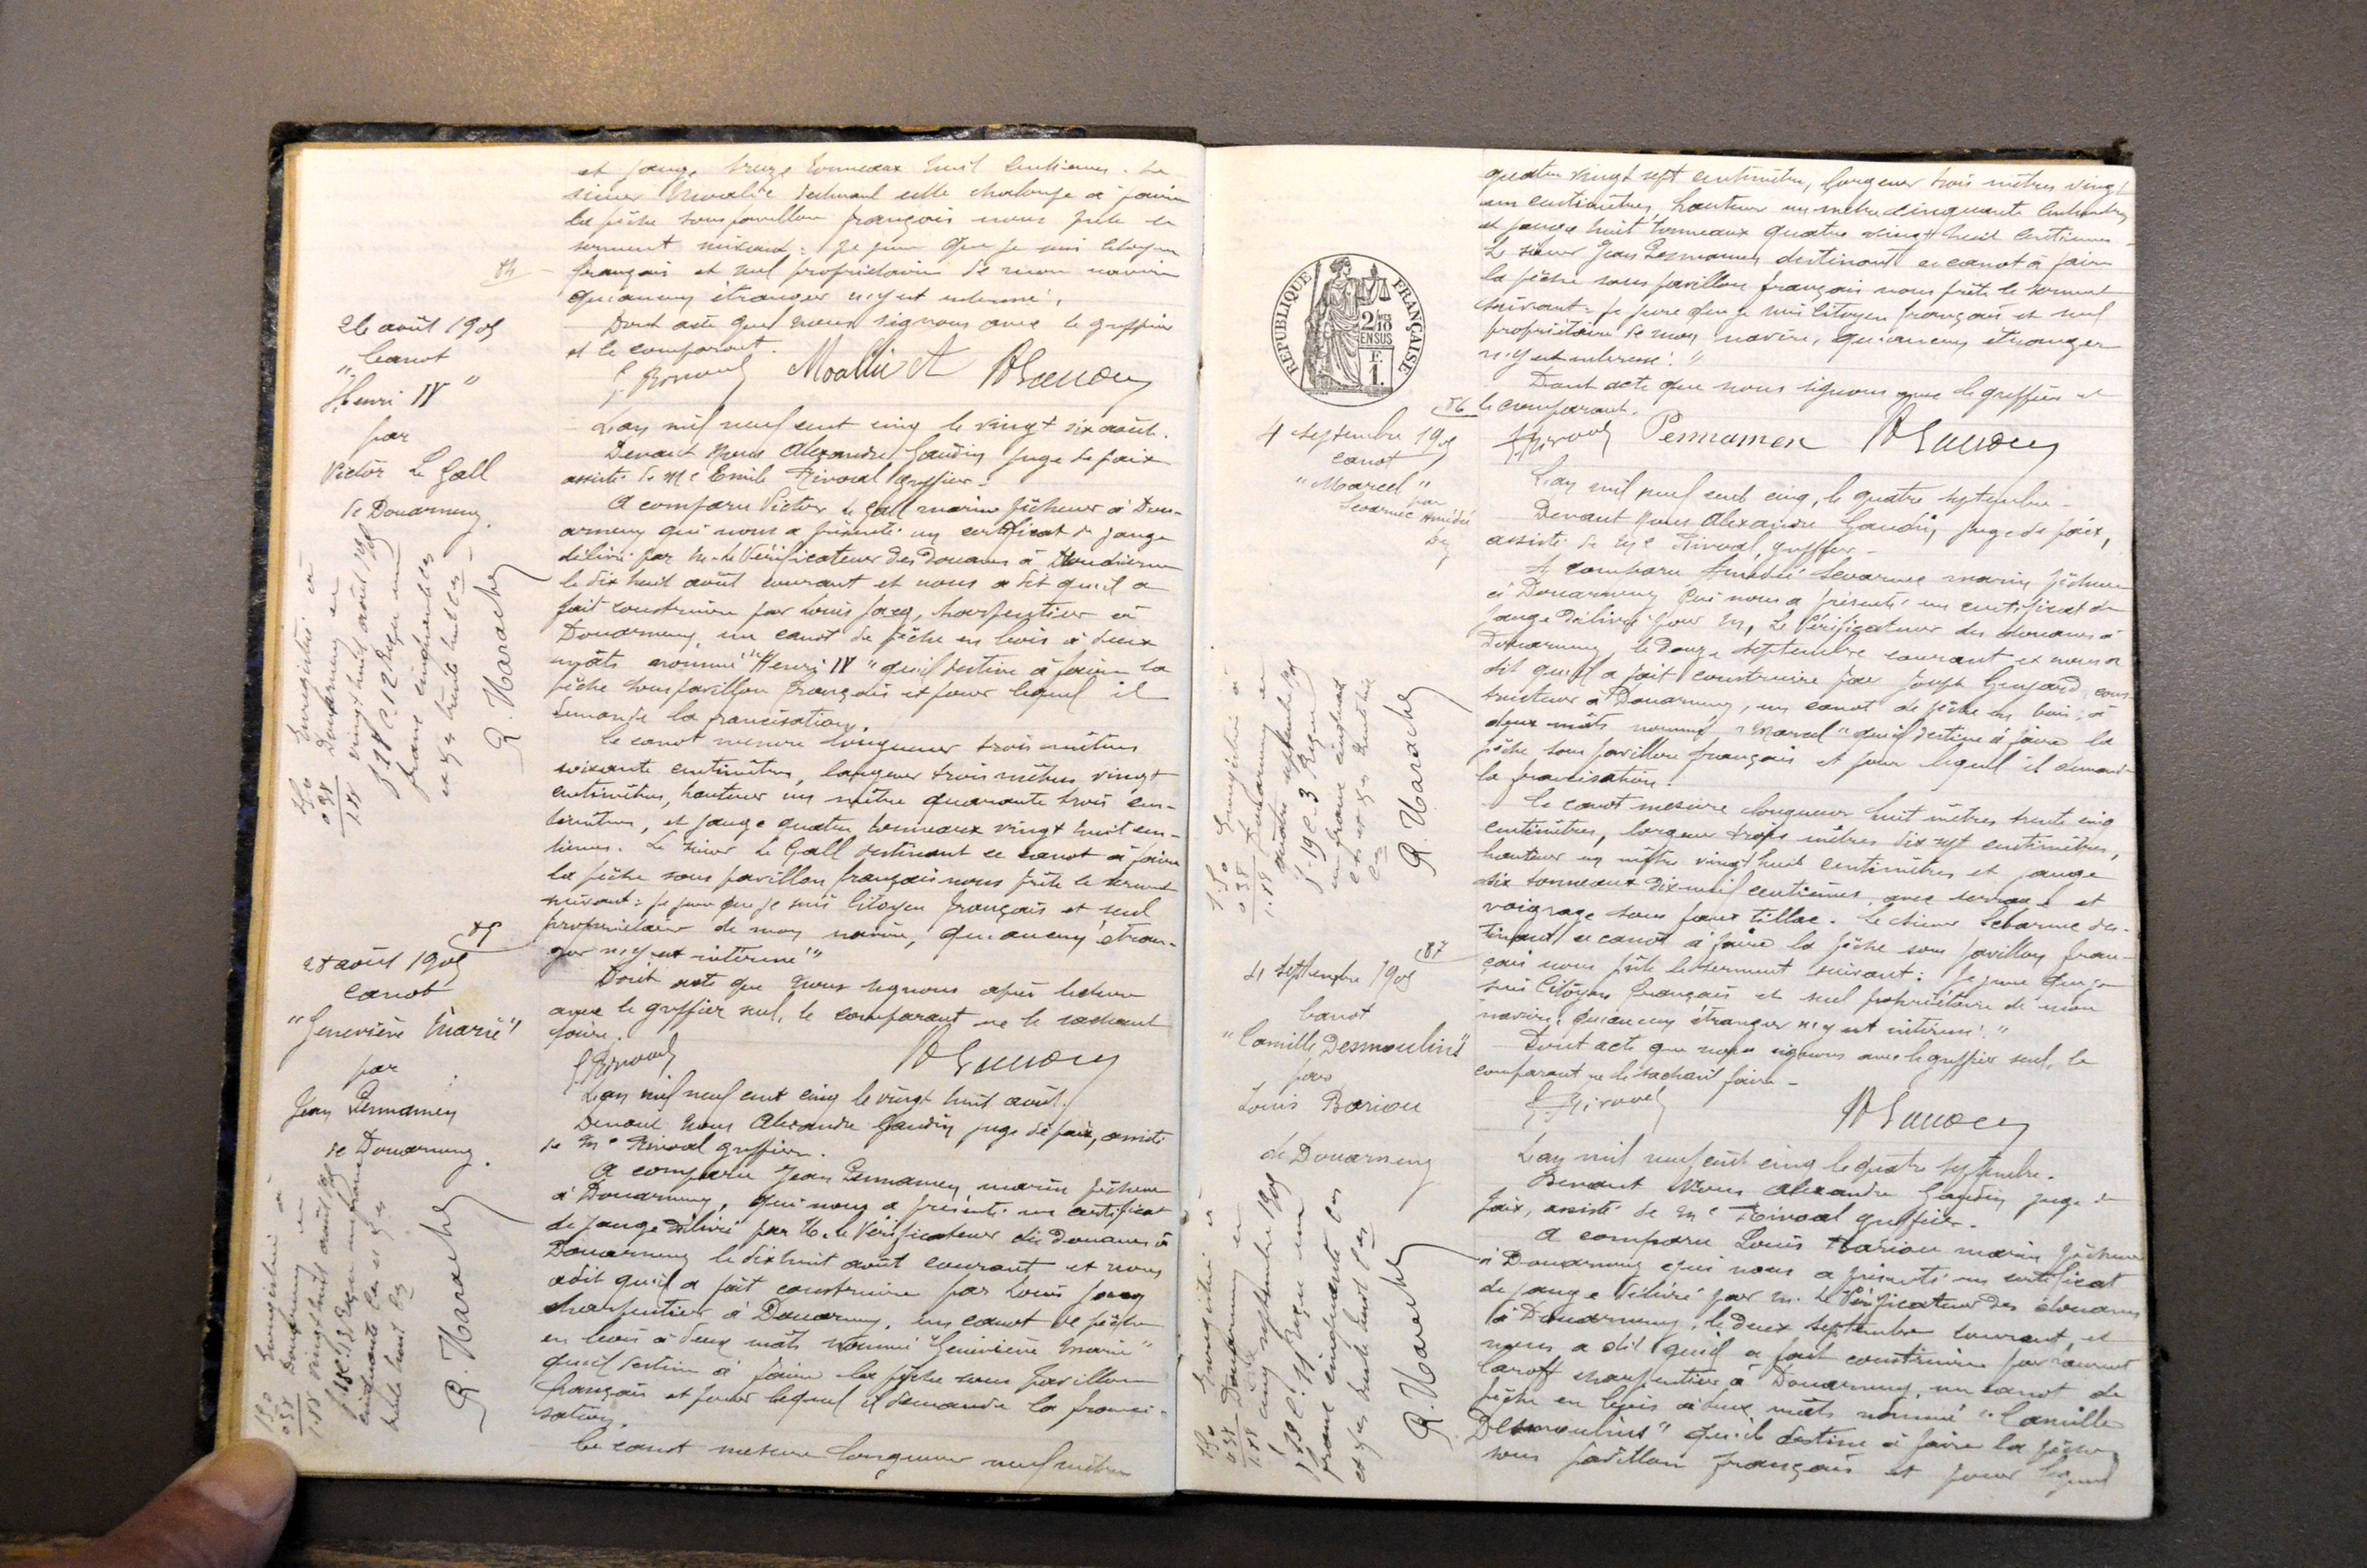 et jauge treize tonneaux huit centièmes. Le
sieur Moallic destinant cette chaloupe à faire
la pêche sous pavillon français nous prête le
serment suivant: je jure que je suis citoyen
français et seul propriétaire de mon navire
qu'aucun étranger n'y est intéressé.
Dont acte que nous signons avec le greffier
et le comparant.
E. Rivoal Moallic A Gaudin
84
26 août 1905
Canot
"Henri IV"
par
Victor Le Gall
de Douarnenez.
Enregistré à
Douarnenez en
vingt huit août 1905
f° 18 C. 12 Reçu un
franc cinquante ces
et Xes trente huit ces
1.50
0.38
1.88
R. Marache
L'an mil neuf cent cinq le vingt six août.
Devant Nous Alexandre Gaudin juge de paix
assisté de Me Emile Rivoal greffier -
A comparu Victor Le Gall marin pêcheur à Dou-
arnenez qui nous a présenté un certificat de jauge
délivré par M. le Vérificateur des Douanes à
le dix huit août courant et nous a dit qu'il a
fait construire par Louis Jacq, charpentier à
Douarnenez, un canot de pêche en bois à deux
mâts nommé "Henri IV" qu'il destine à faire la
pêche sous pavillon français et pour lequel il
demande la francisation.
Ce canot mesure longueur trois mètres
soixante centimètres, largeur trois mètres vingt
centimètres, hauteur un mètre quarante trois cen-
timètres, et jauge quatre tonneaux vingt huit cen-
tièmes. Le sieur Le Gall destinant ce canot à faire
la pêche sous pavillon français nous prête le serment
suivant: je jure que je suis citoyen français et seul
propriétaire de mon navire, qu'aucun étran-
ger n'y est intéressé"
Dont acte que nous signons après lecture
avec le greffier seul, le comparant ne le sachant
faire.
E. Rivoal Gaudin
85
28 août 1905
canot
"Geneviève Marie"
par
Jean Penmamen
de Douarnenez.
Enregistré à
Douarnenez en
vingt huit août 1905
f° 18 C. 13 Reçu un franc
cinquante ces et Xes
trente huit ces
1.50
0.38
1.88
R. Marache
L'an mil neuf cent cinq le vingt huit août.
Devant Nous Alexandre Gaudin juge de paix, assisté
de Me Rivoal greffier.
A comparu Jean Penmamen marin pêcheur
à Douarnenez, qui nous a présenté un certificat
de jauge délivré par M. le Vérificateur des Douanes à
Douarnenez le dix huit août courant et nous
a dit qu'il a fait construire par Louis Jacq
charpentier à Douarnenez, un canot de pêche
en bois à deux mâts nommé "Geneviève Marie"
qu'il destine à faire la pêche sous pavillon
français et pour lequel il demande la franci-
sation.
Ce canot mesure longueur neuf mètres
quatre vingt sept centimètres, largeur trois mètres vingt
un centimètres, hauteur un mètre cinquante centimètres
et jauge huit tonneaux quatre vingt huit centièmes -
Le sieur Jean Penmamen destinant ce canot à faire
la pêche sous pavillon français nous prête le serment
suivant: je jure que je suis citoyen français et seul
propriétaire de mon navire, qu'aucun étranger
n'y est intéressé."
Dont acte que nous signons avec le greffier et
le comparant.
E. Rivoal Penmamen Gaudin
RÉPUBLIQUE FRANÇAISE
2/10
EN SUS
F.
1.
86
4 septembre 1905
canot
"Marcel"
par
Scouarnec Amédée
Dz
Enregistré à
Douarnenez en
quatre septembre 1905
f° 19 C. 3 Reçu
un franc cinquante
ces et Xes trente huit
ces
1.50
0.38
1.88
R. Marache
L'an mil neuf cent cinq, le quatre septembre -
Devant Nous Alexandre Gaudin juge de paix,
assisté de Me Rivoal, greffier -
A comparu Amédée Scouarnec marin pêcheur
à Douarnenez qui nous a présenté un certificat de
jauge délivré par M. Le Vérificateur des douanes à
Douarnenez, le septembre courant et nous a
dit qu'il a fait construire par Joseph cons-
tructeur à Douarnenez, un canot de pêche en bois, à
deux mâts nommé "Marcel" qu'il destine à faire la
pêche sous pavillon français et pour lequel il demande
la francisation.
Ce canot mesure longueur huit mètres trente cinq
centimètres, largeur trois mètres dix sept centimètres,
hauteur un mètre vingt huit centimètres et jauge
six tonneaux dix-neuf centièmes, avec et
vaigrage sous faux tillac. Le sieur Scouarnec des-
tinant ce canot à faire la pêche sous pavillon fran-
çais nous prête le serment suivant: Je jure que je
suis citoyen français et seul propriétaire de mon
navire, qu'aucun étranger n'y est intéressé."
Dont acte que nous signons avec le greffier seul, le
comparant ne le sachant faire -
E. Rivoal Gaudin
87
4 septembre 1905
Canot
"Camille Desmoulins"
par
Louis Bariou
de Douarnenez
Enregistré à
Douarnenez en
cinq septembre 1905
Reçu un
franc cinquante ces
et Xes trente huit ces
1.50
0.38
1.88
R. Marache
L'an mil neuf cent cinq le quatre septembre.
Devant Nous Alexandre Gaudin juge de
paix, assisté de Me Rivoal greffier.
A comparu Louis Bariou marin pêcheur
à Douarnenez qui nous a présenté un certificat
de jauge délivré par M. le Vérificateur des douanes
à Douarnenez, le deux septembre courant, et
nous a dit qu'il a fait construire par Laurent
Caroff charpentier à Douarnenez, un canot de
pêche en bois à deux mâts nommé "Camille
Desmoulins" qu'il destine à faire la pêche
sous pavillon français et pour lequel